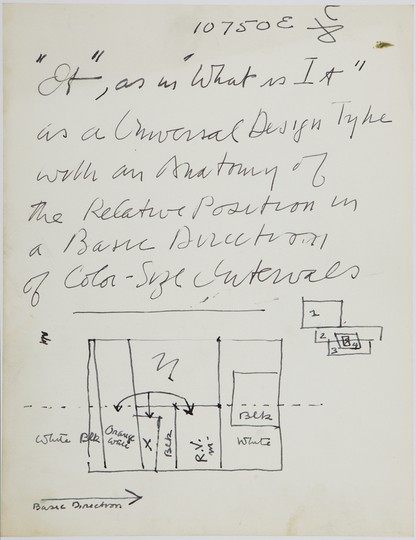 10750E C/8
"It", as in "What is It"
as a Universal Design Type
with an Anatomy of
the Relative Position in
a Basic Direction
of Color-Size Intervals
1
2
3
4
White Blk Orange Wall X Blk R.V. m. Blk White
Basic Direction